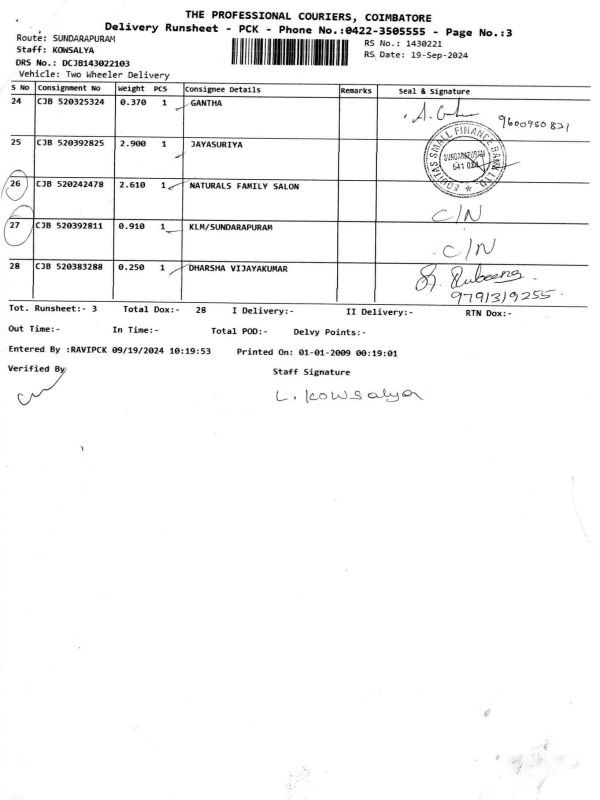 THE PROFESSIONAL COURIERS, COIMBATORE
Delivery Runsheet - PCK - Phone No.:0422-3505555 - Page No.:3
Route: SUNDARAPURAM
RS No.: 1430221
Staff: KOWSALYA
RS Date: 19-Sep-2024
DRS No.: DCJB143022103
Vehicle: Two Wheeler Delivery
S No Consignment No Weight PCS Consignee Details Remarks Seal & Signature
24 CJB 520325324 0.370 1 GANTHA
9600950831
25 CJB 520392825 2.900 1 JAYASURIYA
EQUITAS SMALL FINANCE BANK LTD.
SUNDARAPURAM
641 024
26 CJB 520242478 2.610 1 NATURALS FAMILY SALON
C/N
27 CJB 520392811 0.910 1 KLM/SUNDARAPURAM
C/N
28 CJB 520383288 0.250 1 DHARSHA VIJAYAKUMAR
Rubeena
9791319255
Tot. Runsheet:- 3 Total Dox:- 28 I Delivery:- II Delivery:- RTN Dox:-
Out Time:- In Time:- Total POD:- Delvy Points:-
Entered By :RAVIPCK 09/19/2024 10:19:53 Printed On: 01-01-2009 00:19:01
Verified By
Staff Signature
L. Kowsalya